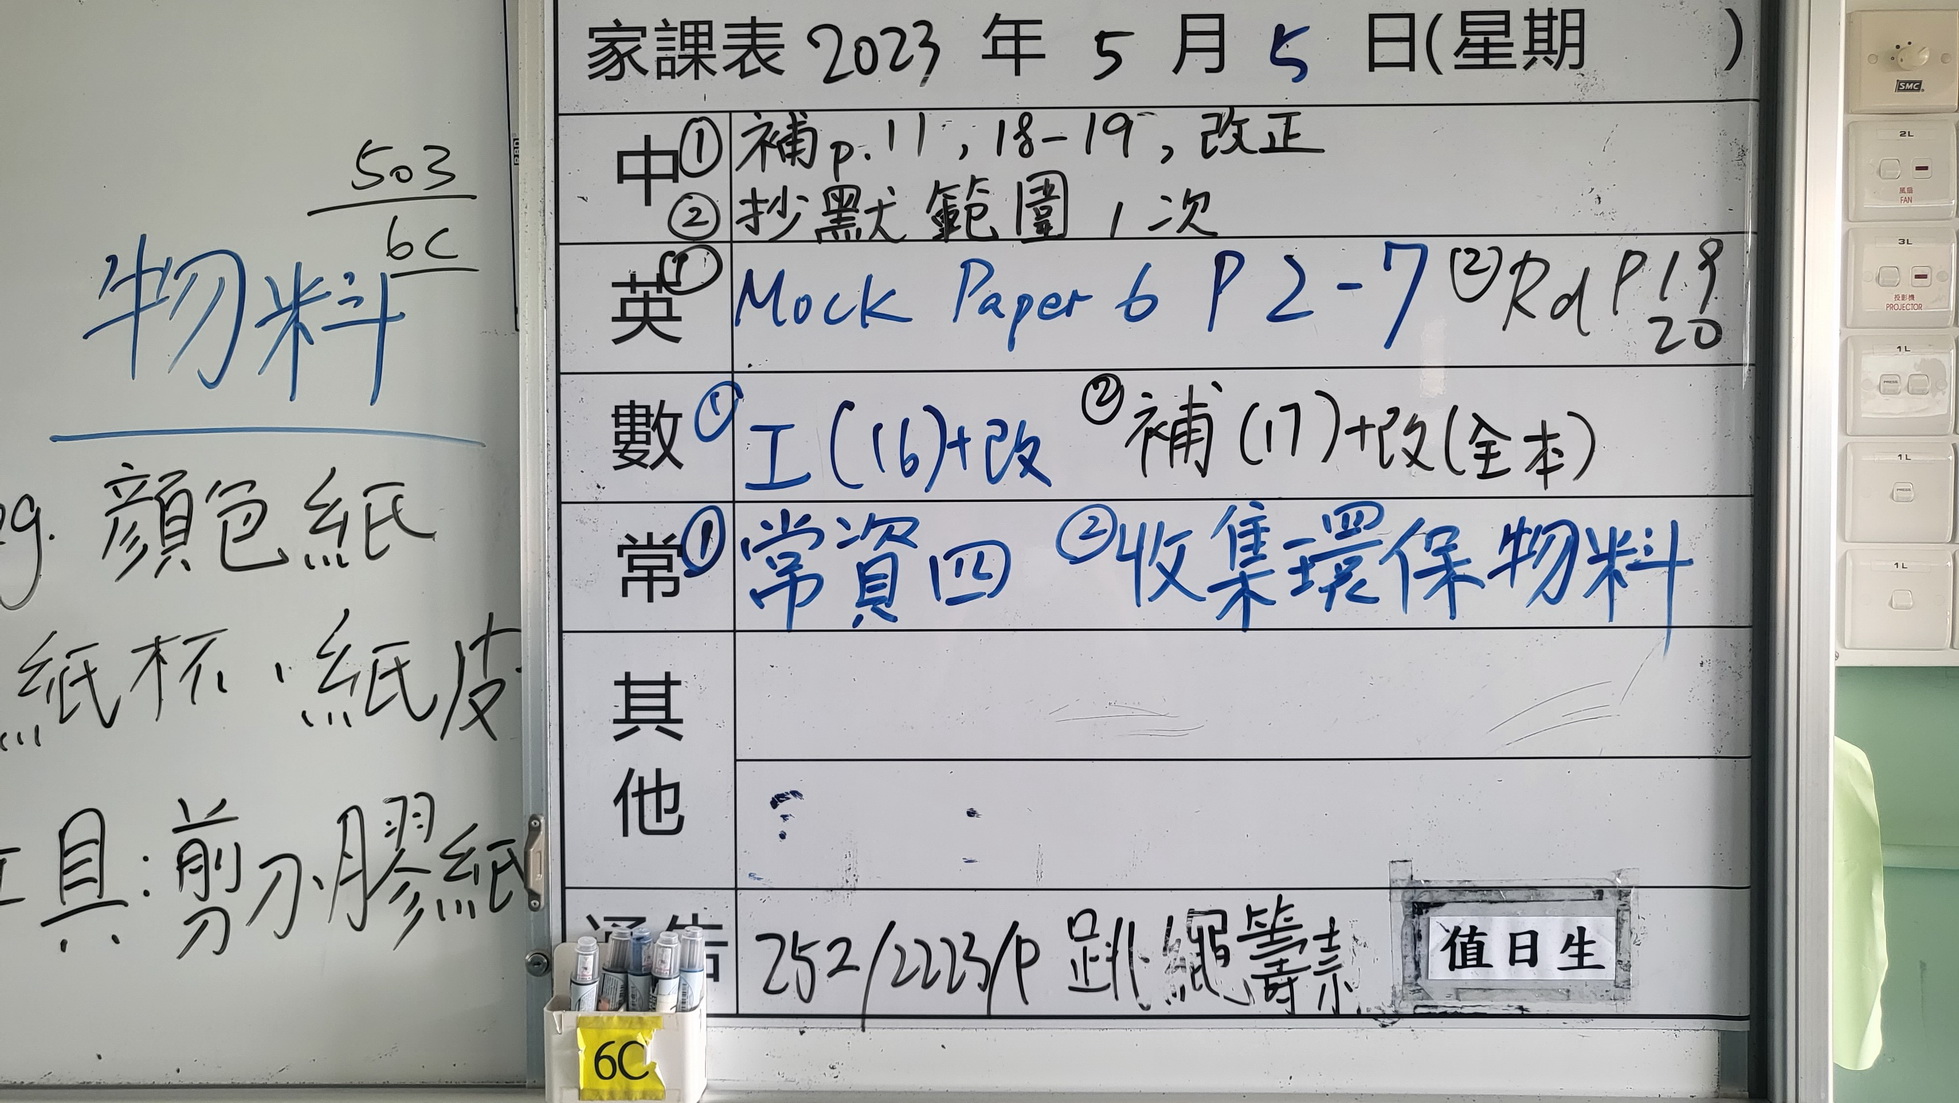 503
6C
物料
eg. 顏色紙
紙杯、紙皮
工具:剪刀、膠紙
家課表 2023 年 5 月 5 日(星期 )
中 ① 補p.11, 18-19, 改正
② 抄默範圍 1 次
英 ① Mock Paper 6 P 2-7 ② Rd P 19
20
數 ① 工(16)+改 ② 補(17)+改(全本)
常 ① 常資四 ② 收集環保物料
其他
通告 252/2223/P 跳繩籌款
值日生
6C
SMC
2L
風扇
FAN
3L
投影機
PROJECTOR
1L
1L
1L